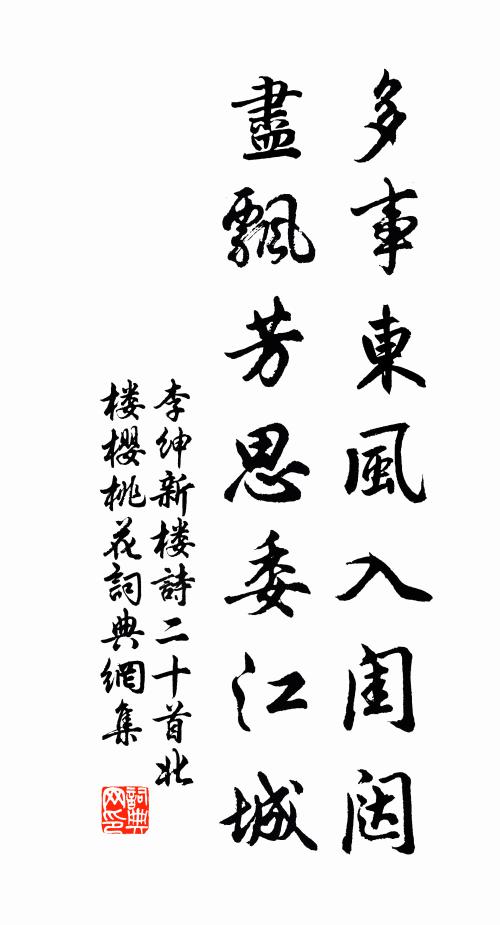 多事東風入閨闼
盡飄芳思委江城
李绅新楼詩二十首北
楼樱桃花詞典網集
詞典
网印